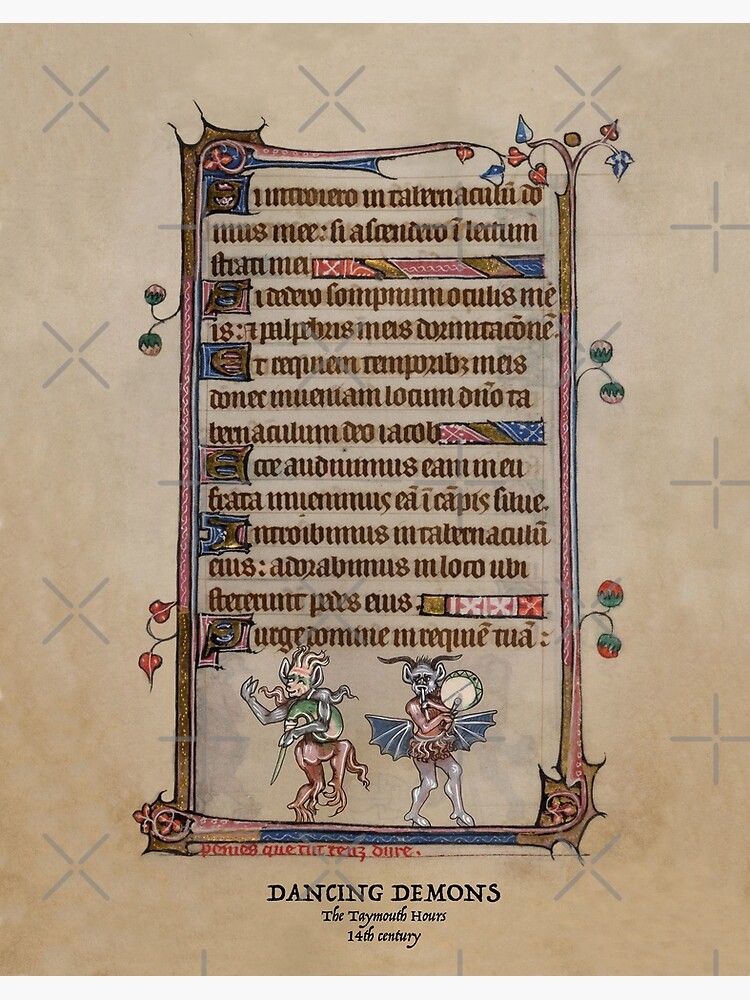 Si introiero in tabernaculū do
mus mee: si ascendero ī lectum
strati mei
Si dedero sompnum oculis me
is: ⁊ palpebris meis dormitacōnē.
Et requiem temporibȝ meis
donec inueniam locum dn̄o ta
bernaculum deo iacob
Ecce audiuimus eam in eu
frata inuenimus eā ī cāpis silue.
Introibimus in tabernaculū
eius: adorabimus in loco ubi
steterunt pedes eius
Surge domine in requiē tuā:
peines que tut tenz dure.
DANCING DEMONS
The Taymouth Hours
14th century